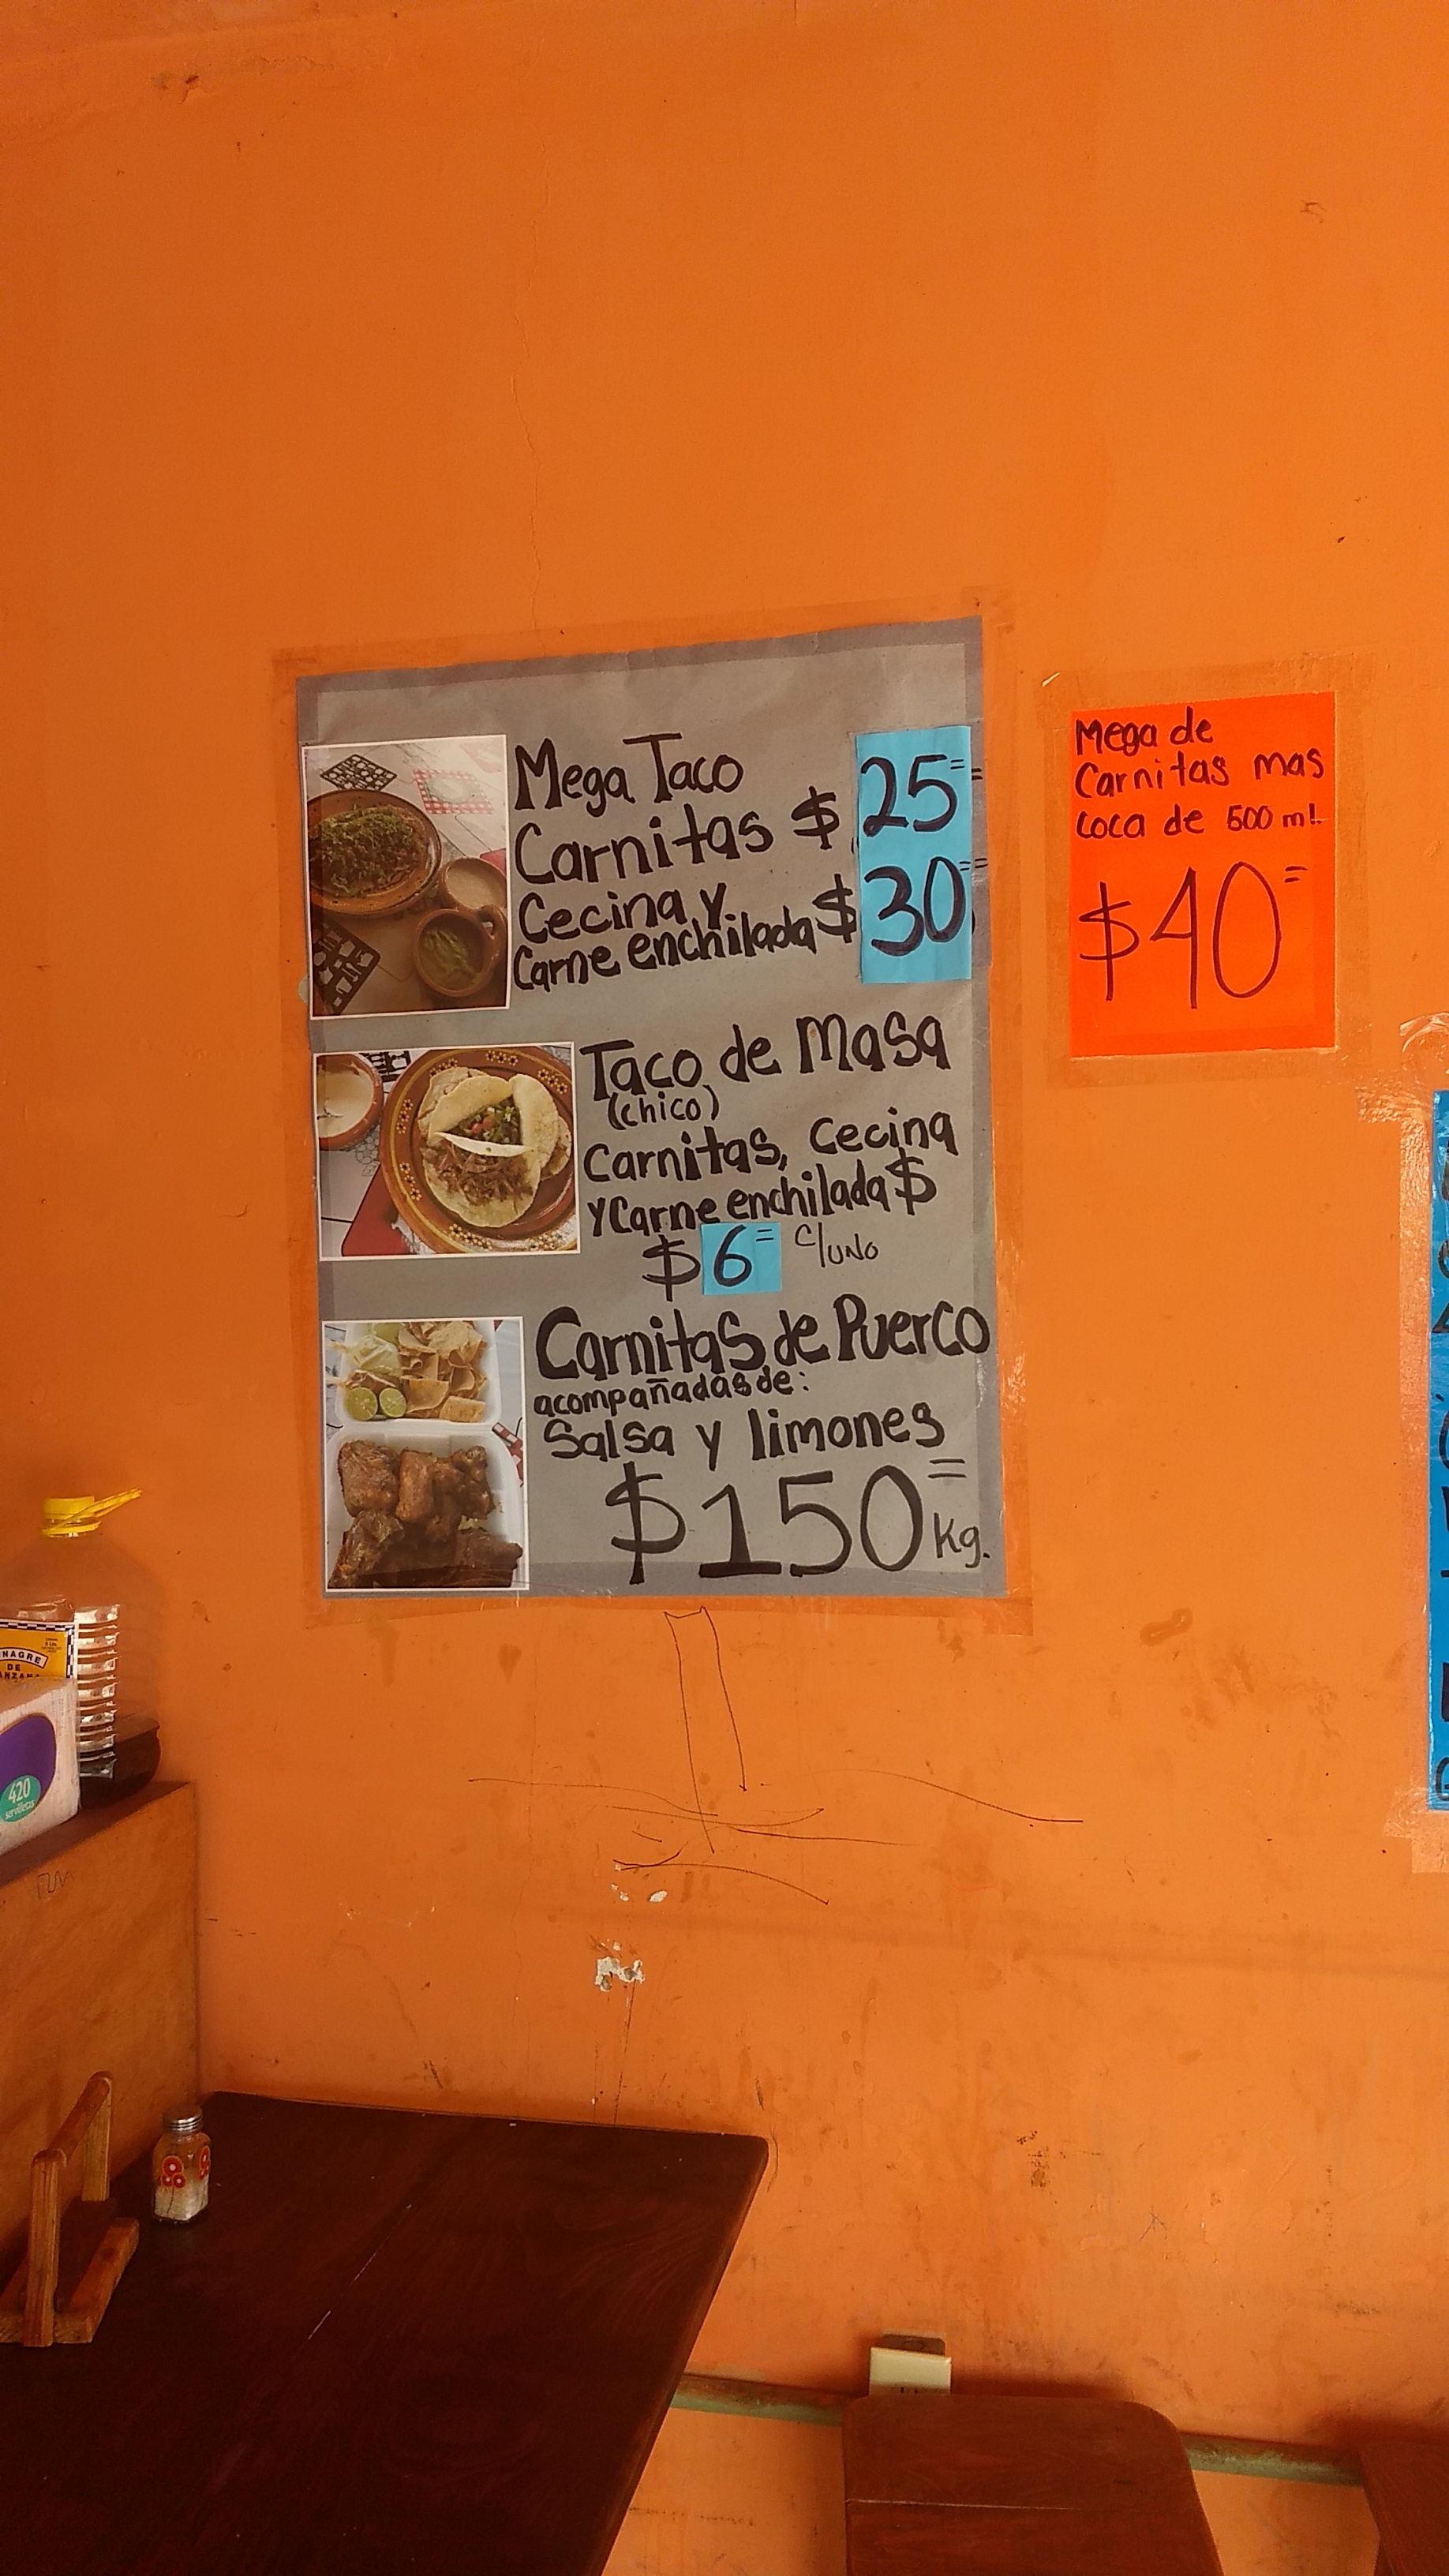 Mega Taco
Carnitas $ 25=
Cecina y
Carne enchilada $ 30=
Taco de Masa
(chico)
Carnitas, Cecina
y Carne enchilada $
$ 6= c/uno
Carnitas de Puerco
acompañadas de:
Salsa y limones
$150= kg.
Mega de
Carnitas mas
coca de 500 ml.
$40=
DE
420
servilletas